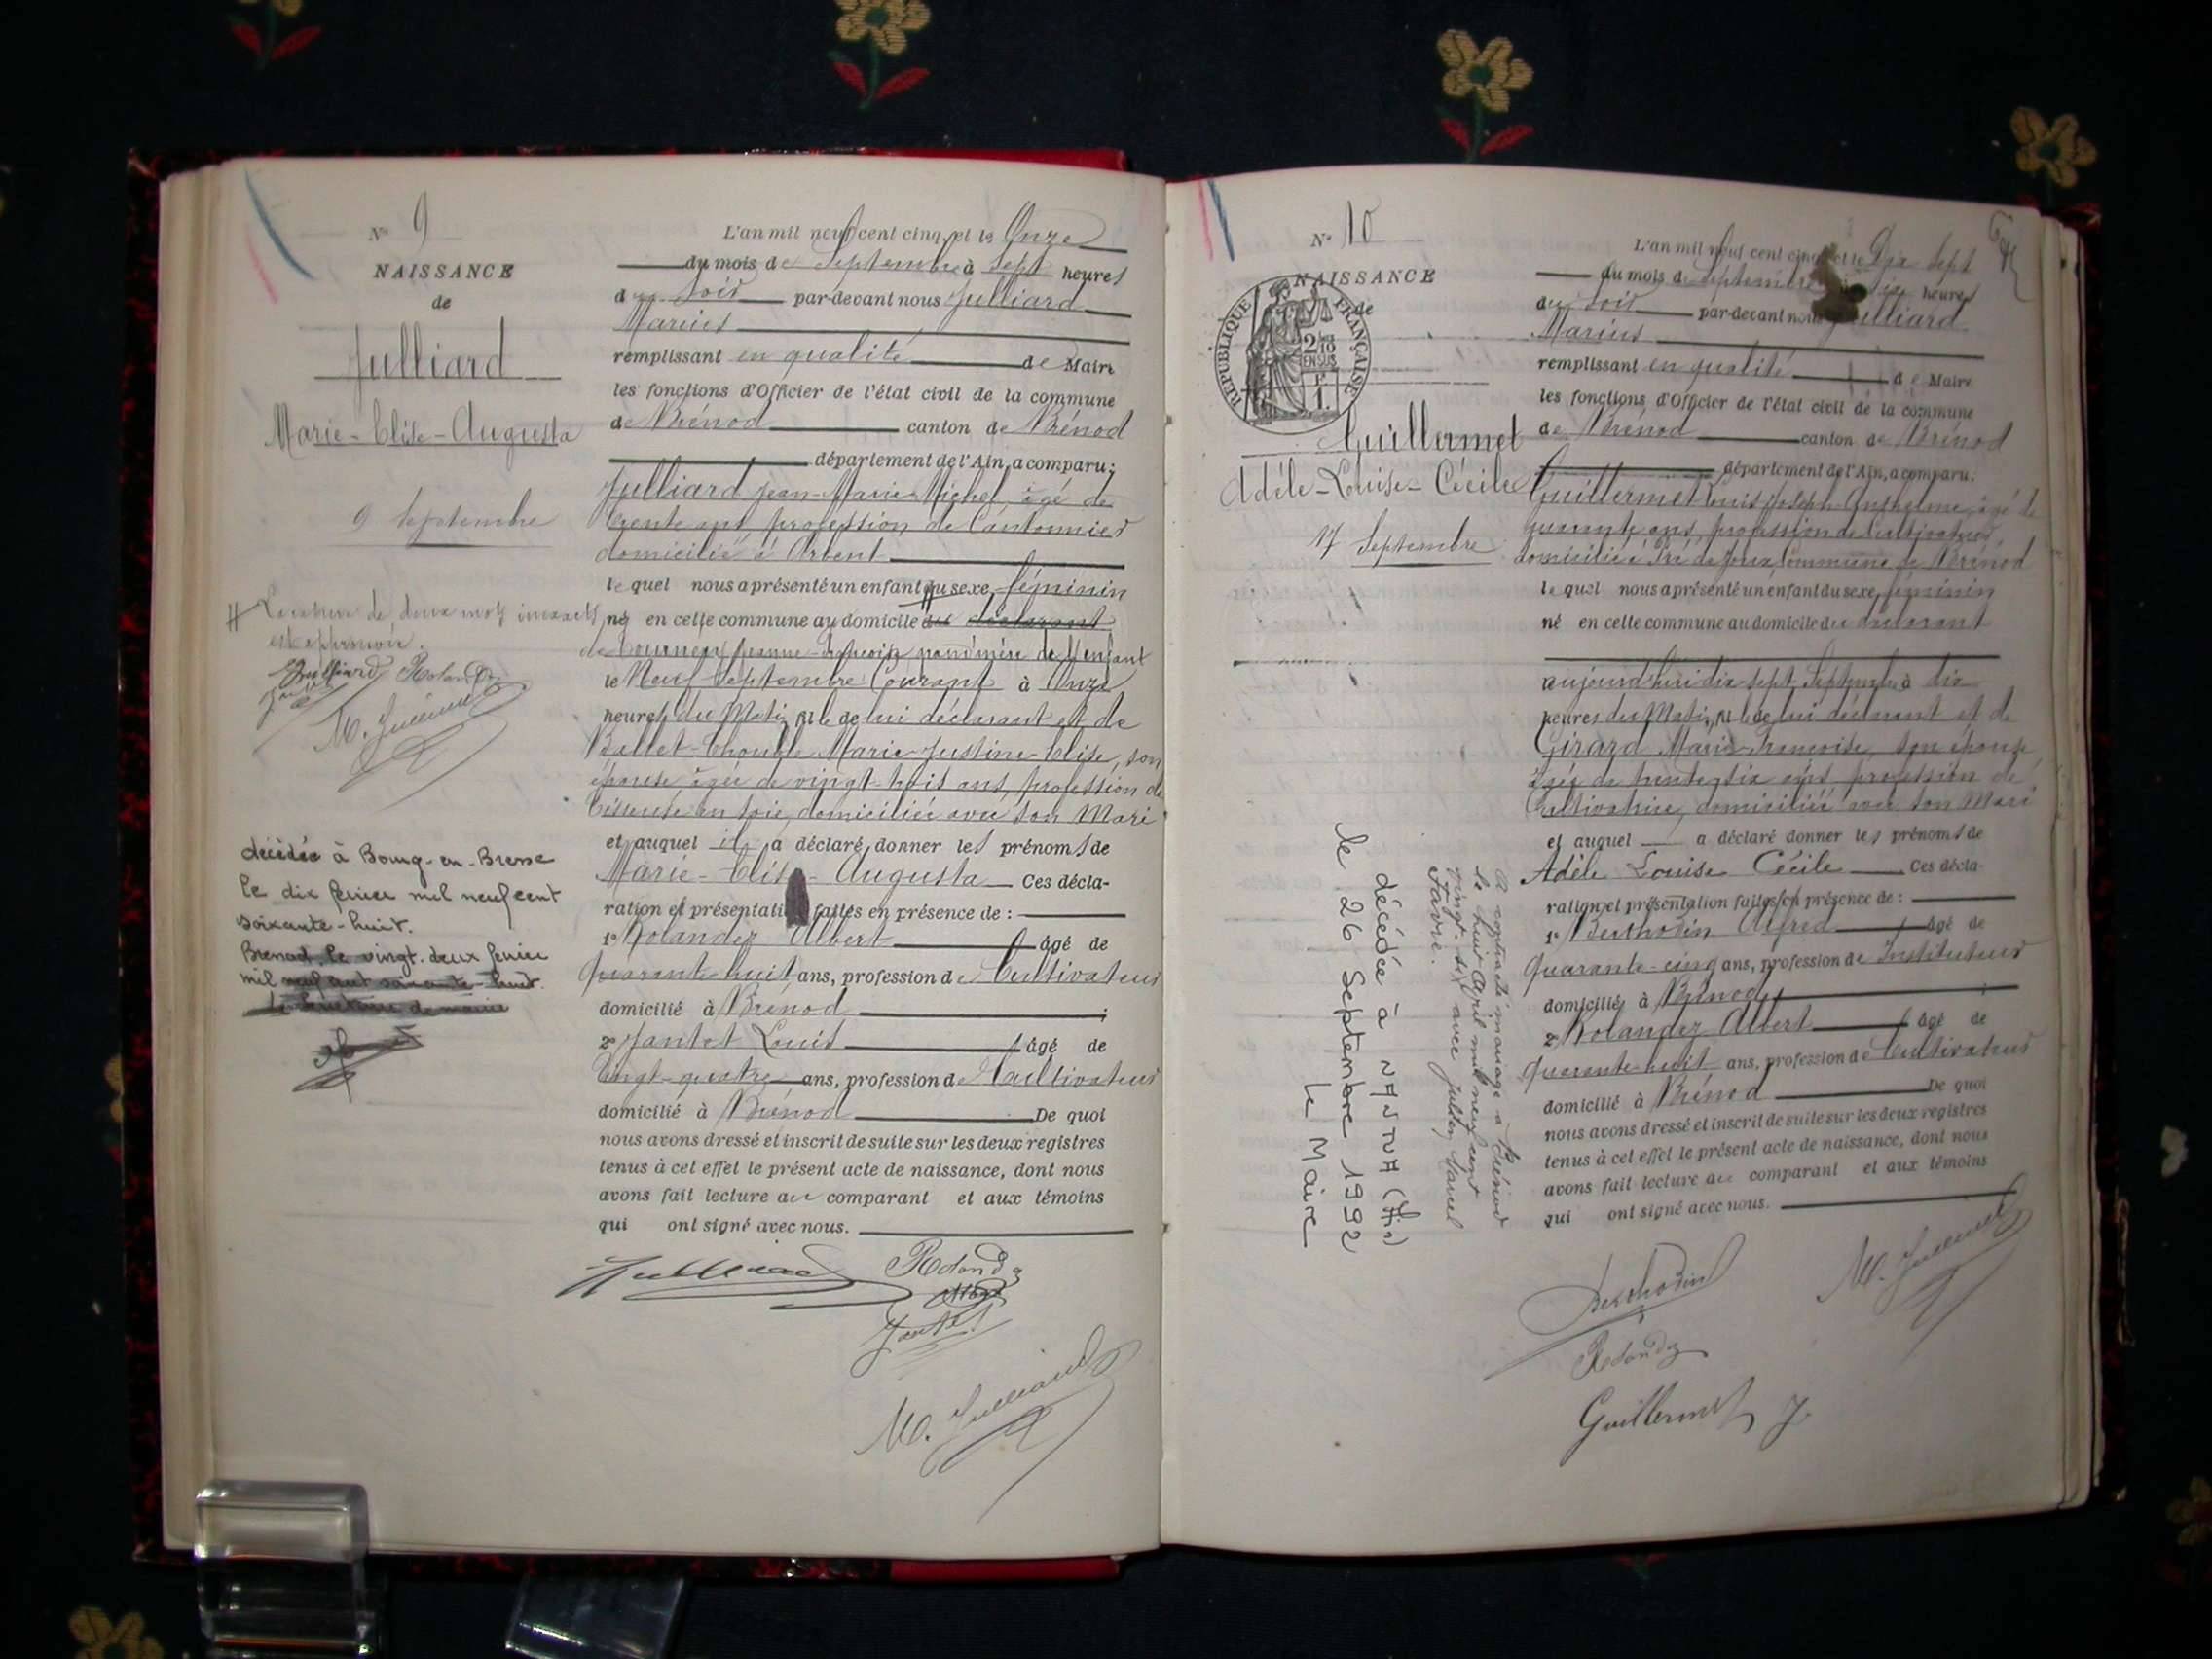 N° 9
NAISSANCE
de
Julliard
Marie-Elise-Augusta
9 Septembre
de deux mots
Rolandez
M. Julliard
décédée à Bourg-en-Bresse
le dix février mil neuf cent
soixante-huit.
Brenod, le vingt-deux février
mil neuf cent soixante-huit.
L'an mil neuf cent cinq, et le Onze
du mois de Septembre à Sept heures
du soir par-devant nous Julliard
Marius
remplissant en qualité de Maire
les fonctions d'Officier de l'état civil de la commune
de Brénod canton de Brénod
département de l'Ain, a comparu:
Julliard Jean-Marie-Michel, âgé de
trente ans, profession de Cantonnier
domicilié à Arbent
lequel nous a présenté un enfant du sexe féminin
né en cette commune au domicile du déclarant
de Jeanne grand'mère de l'enfant
le Neuf Septembre Courant à Onze
heures du Matin, de lui déclarant et de
Ballet Marie-Justine-Elise, son
épouse âgée de vingt-trois ans, profession de
Tisseuse en soie, domiciliée avec son Mari
et auquel il a déclaré donner les prénoms de
Marie-Elise-Augusta Ces décla-
ration et présentation faites en présence de :
1° Rolandez Albert âgé de
quarante-huit ans, profession de Cultivateur
domicilié à Brénod ;
2° Jantet Louis âgé de
vingt-quatre ans, profession de Cultivateur
domicilié à Brénod De quoi
nous avons dressé et inscrit de suite sur les deux registres
tenus à cet effet le présent acte de naissance, dont nous
avons fait lecture au comparant et aux témoins
qui ont signé avec nous.
Julliard Rolandez
Jantet
M. Julliard
N° 10
NAISSANCE
de
RÉPUBLIQUE FRANÇAISE
2/10
EN SUS
F
1.
Guillermet
Adèle-Louise-Cécile
17 Septembre
A contracté mariage à Brénod
le huit Avril mil neuf cent
vingt-six avec Julien Marcel
Favre.
décédée à NANTUA (Ain)
le 26 Septembre 1992
Le Maire
L'an mil neuf cent cinq et le Dix Sept
du mois de Septembre heures
du soir par-devant nous Julliard
Marius
remplissant en qualité de Maire
les fonctions d'Officier de l'état civil de la commune
de Brénod canton de Brénod
département de l'Ain, a comparu:
Guillermet Louis Joseph Anthelme, âgé de
quarante ans, profession de Cultivateur,
domicilié à Pré de Joux Commune de Brénod
lequel nous a présenté un enfant du sexe féminin
né en cette commune au domicile du déclarant
aujourd'hui dix-sept Septembre à dix
heures du Matin, de lui déclarant et de
Girard Marie-Françoise, son épouse
âgée de trente-six ans, profession de
Cultivatrice, domiciliée avec son Mari
et auquel a déclaré donner les prénoms de
Adèle Louise Cécile Ces décla-
ration et présentation faites en présence de :
1° Berthodin Alfred âgé de
quarante-cinq ans, profession de Instituteur
domicilié à Brénod ;
2° Rolandez Albert âgé de
quarante-huit ans, profession de Cultivateur
domicilié à Brénod De quoi
nous avons dressé et inscrit de suite sur les deux registres
tenus à cet effet le présent acte de naissance, dont nous
avons fait lecture au comparant et aux témoins
qui ont signé avec nous.
Berthodin M. Julliard
Rolandez
Guillermet J.